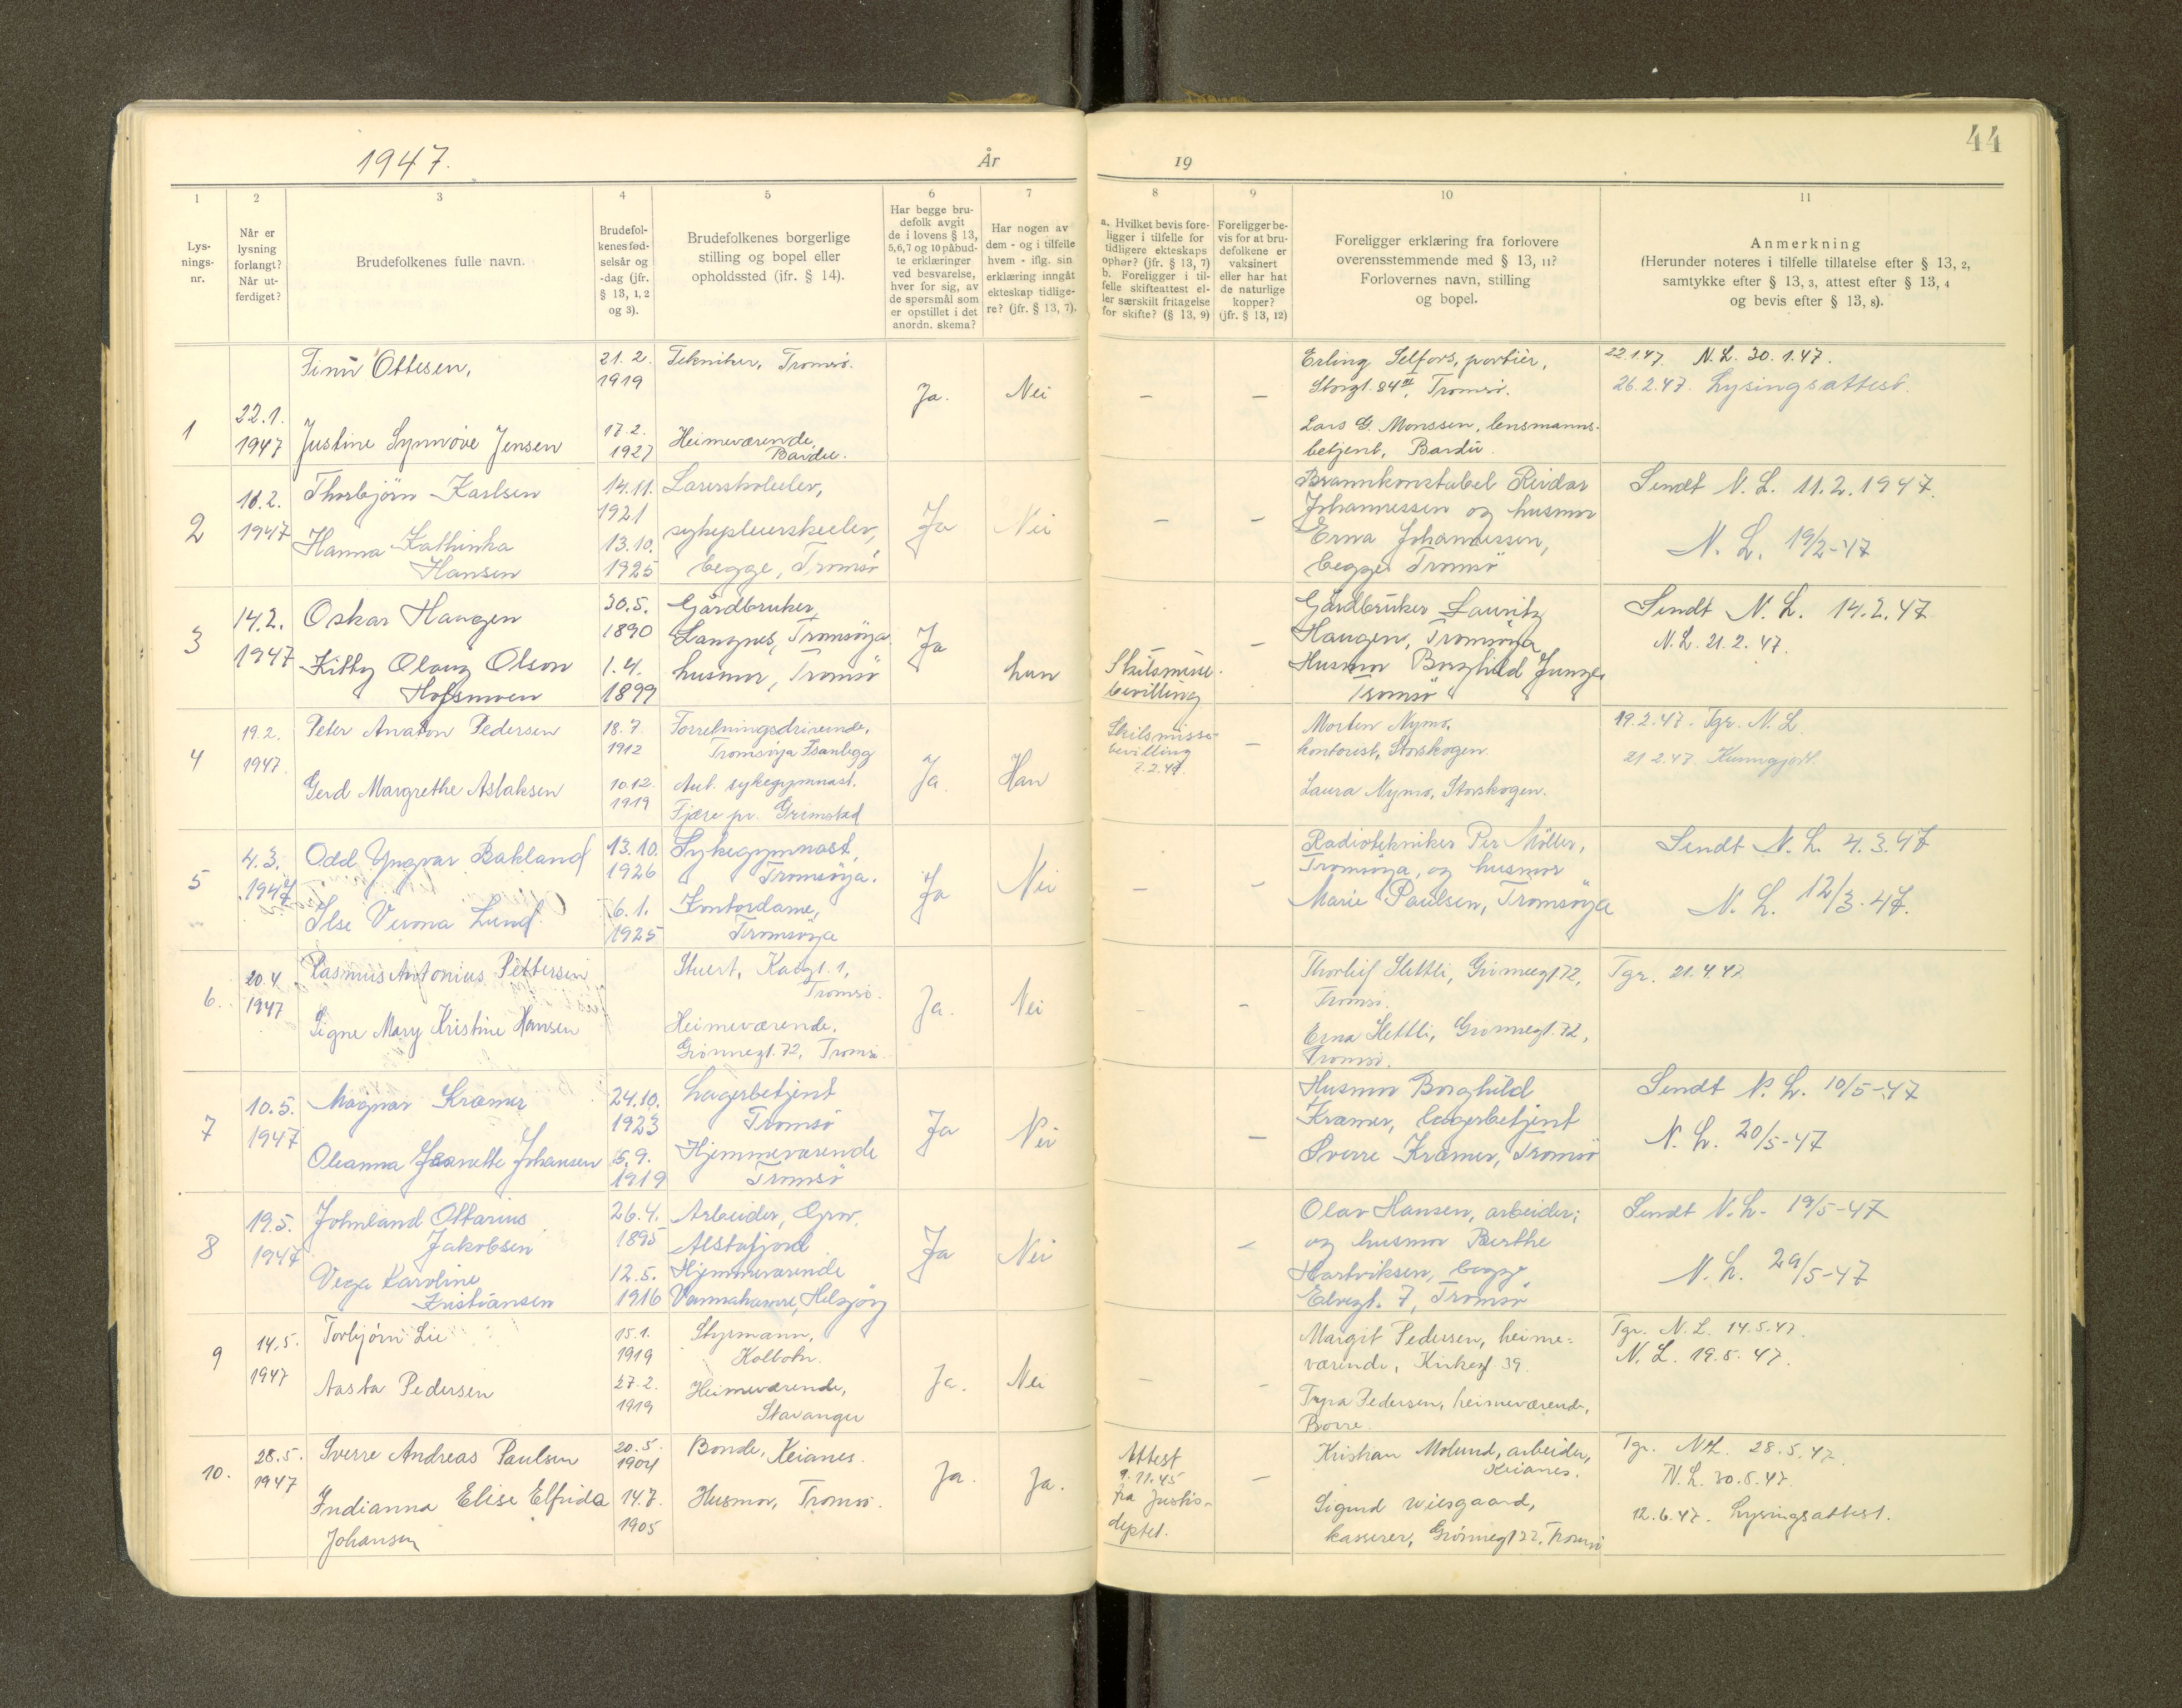 44
1947.
År
19
1
2
3
4
5
6
7
8
9
10
11
Lys-
nings-
nr.
Når er
lysning
forlangt?
Når ut-
ferdiget?
Brudefolkenes fulle navn.
Brudefol-
kenes fød-
selsår og
-dag (jfr.
§ 13, 1, 2
og 3).
Brudefolkenes borgerlige
stilling og bopel eller
opholdssted (ifr. § 14).
Har begge bru-
defolk avgit
de i lovens § 13,
5,6,7 og 10 påbud-
te erklæringer
ved besvarelse,
hver for sig, av
de spørsmål som
er opstillet i det
anordn. skema?
Har nogen av
dem - og i tilfelle
hvem - iflg. sin
erklæring inngåt
ekteskap tidlige-
re? (jfr. § 13, 7).
a. Hvilket bevis fore-
ligger i tilfelle for
tidligere ekteskaps
ophør? (jfr. § 13, 7)
b. Foreligger i til-
felle skifteattest el-
ler særskilt fritagelse
for skifte? (§ 13, 9)
Foreligger be-
vis for at bru-
defolkene er
vaksinert
eller har hat
de naturlige
kopper?
(jfr. § 13, 12)
Foreligger erklæring fra forlovere
overensstemmende med § 13, 11?
Forlovernes navn, stilling
og bopel.
Anmerkning
(Herunder noteres i tilfelle tillatelse efter § 13, 2,
samtykke efter § 13, 3, attest efter § 13, 4
og bevis efter § 13, 8).
1
22.1.
1947
Finn Ottesen,
Justine Synnöve Jensen
21. 2.
1919
17. 2.
1927
Tekniker, Tromsö.
Heimeværende,
Bardu.
Ja.
Nei
–
–
Erling Selfors, portier,
Storgt. 84, Tromsö.
Lars G. Monssen, lensmanns-
betjent, Bardu.
22.1.47. N.L. 30.1.47.
26.2.47. Lysingsattest.
2
10.2.
1947
Thorbjörn Karlsen
Hanna Kathinka
Hansen
14.11.
1921
13.10.
1925
Lærerskoleelev,
sykepleierskeelev,
begge, Tromsö
Ja
Nei
–
–
Brannkonstabel Reidar
Johannessen og husmor
Erna Johannessen,
begge Tromsö
Sendt N.L. 11.2.1947.
N.L. 19/2-47
3
14.2.
1947
Oskar Haugen
Kitty Olaug Olson
Hofsmoen
30.5.
1890
1.4.
1899
Gårdbruker,
Langnes, Tromsöya.
husmor, Tromsö
Ja
hun
Skilsmisse-
bevilling
–
Gårdbruker Lauritz
Haugen, Tromsöya
Husmor Borghild Junge,
Tromsö
Sendt N.L. 14.2.47
N.L. 21.2.47.
4
19.2.
1947.
Peter Anaton Pedersen
Gerd Margrethe Aslaksen
18.7.
1912
10.12.
1919
Forretningsdrivende,
Tromsöya Isanlegg
Aut. sykegymnast.
Fjære pr. Grimstad
Ja.
Han
Skilsmisse-
bevilling
7.2.47.
–
Morten Nymo,
kontorist, Storskogen.
Laura Nymo, Storskogen.
19.2.47. Tgr. N.L.
21.2.47. Kunngjort.
5
4.3.
1947
Odd Yngvar Bakland
Ilse Verona Lund.
13.10.
1926
6.1.
1925
Sykegymnast,
Tromsöya.
Kontordame,
Tromsöya
Ja
Nei
–
–
Radiotekniker Per Möller,
Tromsöya, og husmor
Marie Paulsen, Tromsöya
Sendt N.L. 4.3.47
N.L. 12/3.47.
6.
20.4
1947
Rasmus Antonius Pettersen
Signe Mary Kristine Hansen
Stuert,
Tromsö.
Heimeværende,
Grönnegt. 72, Tromsö.
Ja.
Nei
–
–
Thorleif Slettli, Grönnegt 72,
Tromsö.
Erna Slettli, Grönnegt. 72,
Tromsö.
Tgr. 21.4.47.
7
10.5.
1947
Magnar Kræmer
Oleanna Jeanette Johansen
24.10.
1923
5.9.
1919
Lagerbetjent
Tromsö
Hjemmeværende
Tromsö
Ja
Nei
–
Husmor Borghild
Kræmer, lagerbetjent
Sverre Kræmer, Tromsö
Sendt N.L. 10/5-47
N.L. 20/5-47
8
19.5.
1947
Johnland Ottarius
Jakobsen
Vega Karoline
Kristiansen
26.4.
1895
12.5.
1916
Arbeider,
Hjemmeværende
Vannahamre, Helgöy
Ja
Nei
–
Olav Hansen, arbeider,
og husmor Berthe
Hartviksen, begge
Elvegt. 7, Tromsö
Sendt N.L. 19/5-47
N.L. 29/5-47
9
14.5.
1947
Torbjörn Lie
Aasta Pedersen
15.1.
1919
27.2.
1919
Styrmann,
Kolbotn.
Heimeværende,
Stavanger
Ja.
Nei
–
–
Margit Pedersen, heime-
værende, Kirkegt 39.
Tyra Pedersen, heimeværende,
Borre.
Tgr. N.L. 14.5.47.
N.L. 19.5.47.
10.
28.5.
1947
Sverre Andreas Paulsen
Indianna Elise Elfrida
Johansen
20.5.
1904
14.7.
1905
Bonde, Keianes.
Husmor, Tromsö.
Ja.
Ja.
Attest
9.11.45
fra Justis-
deptet.
–
Kristian Molund, arbeider,
Keianes.
Sigurd Wiesgaard,
kasserer, Grönnegt 22, Tromsö
Tgr. N.L. 28.5.47.
N.L. 30.5.47.
12.6.47. Lysingsattest.